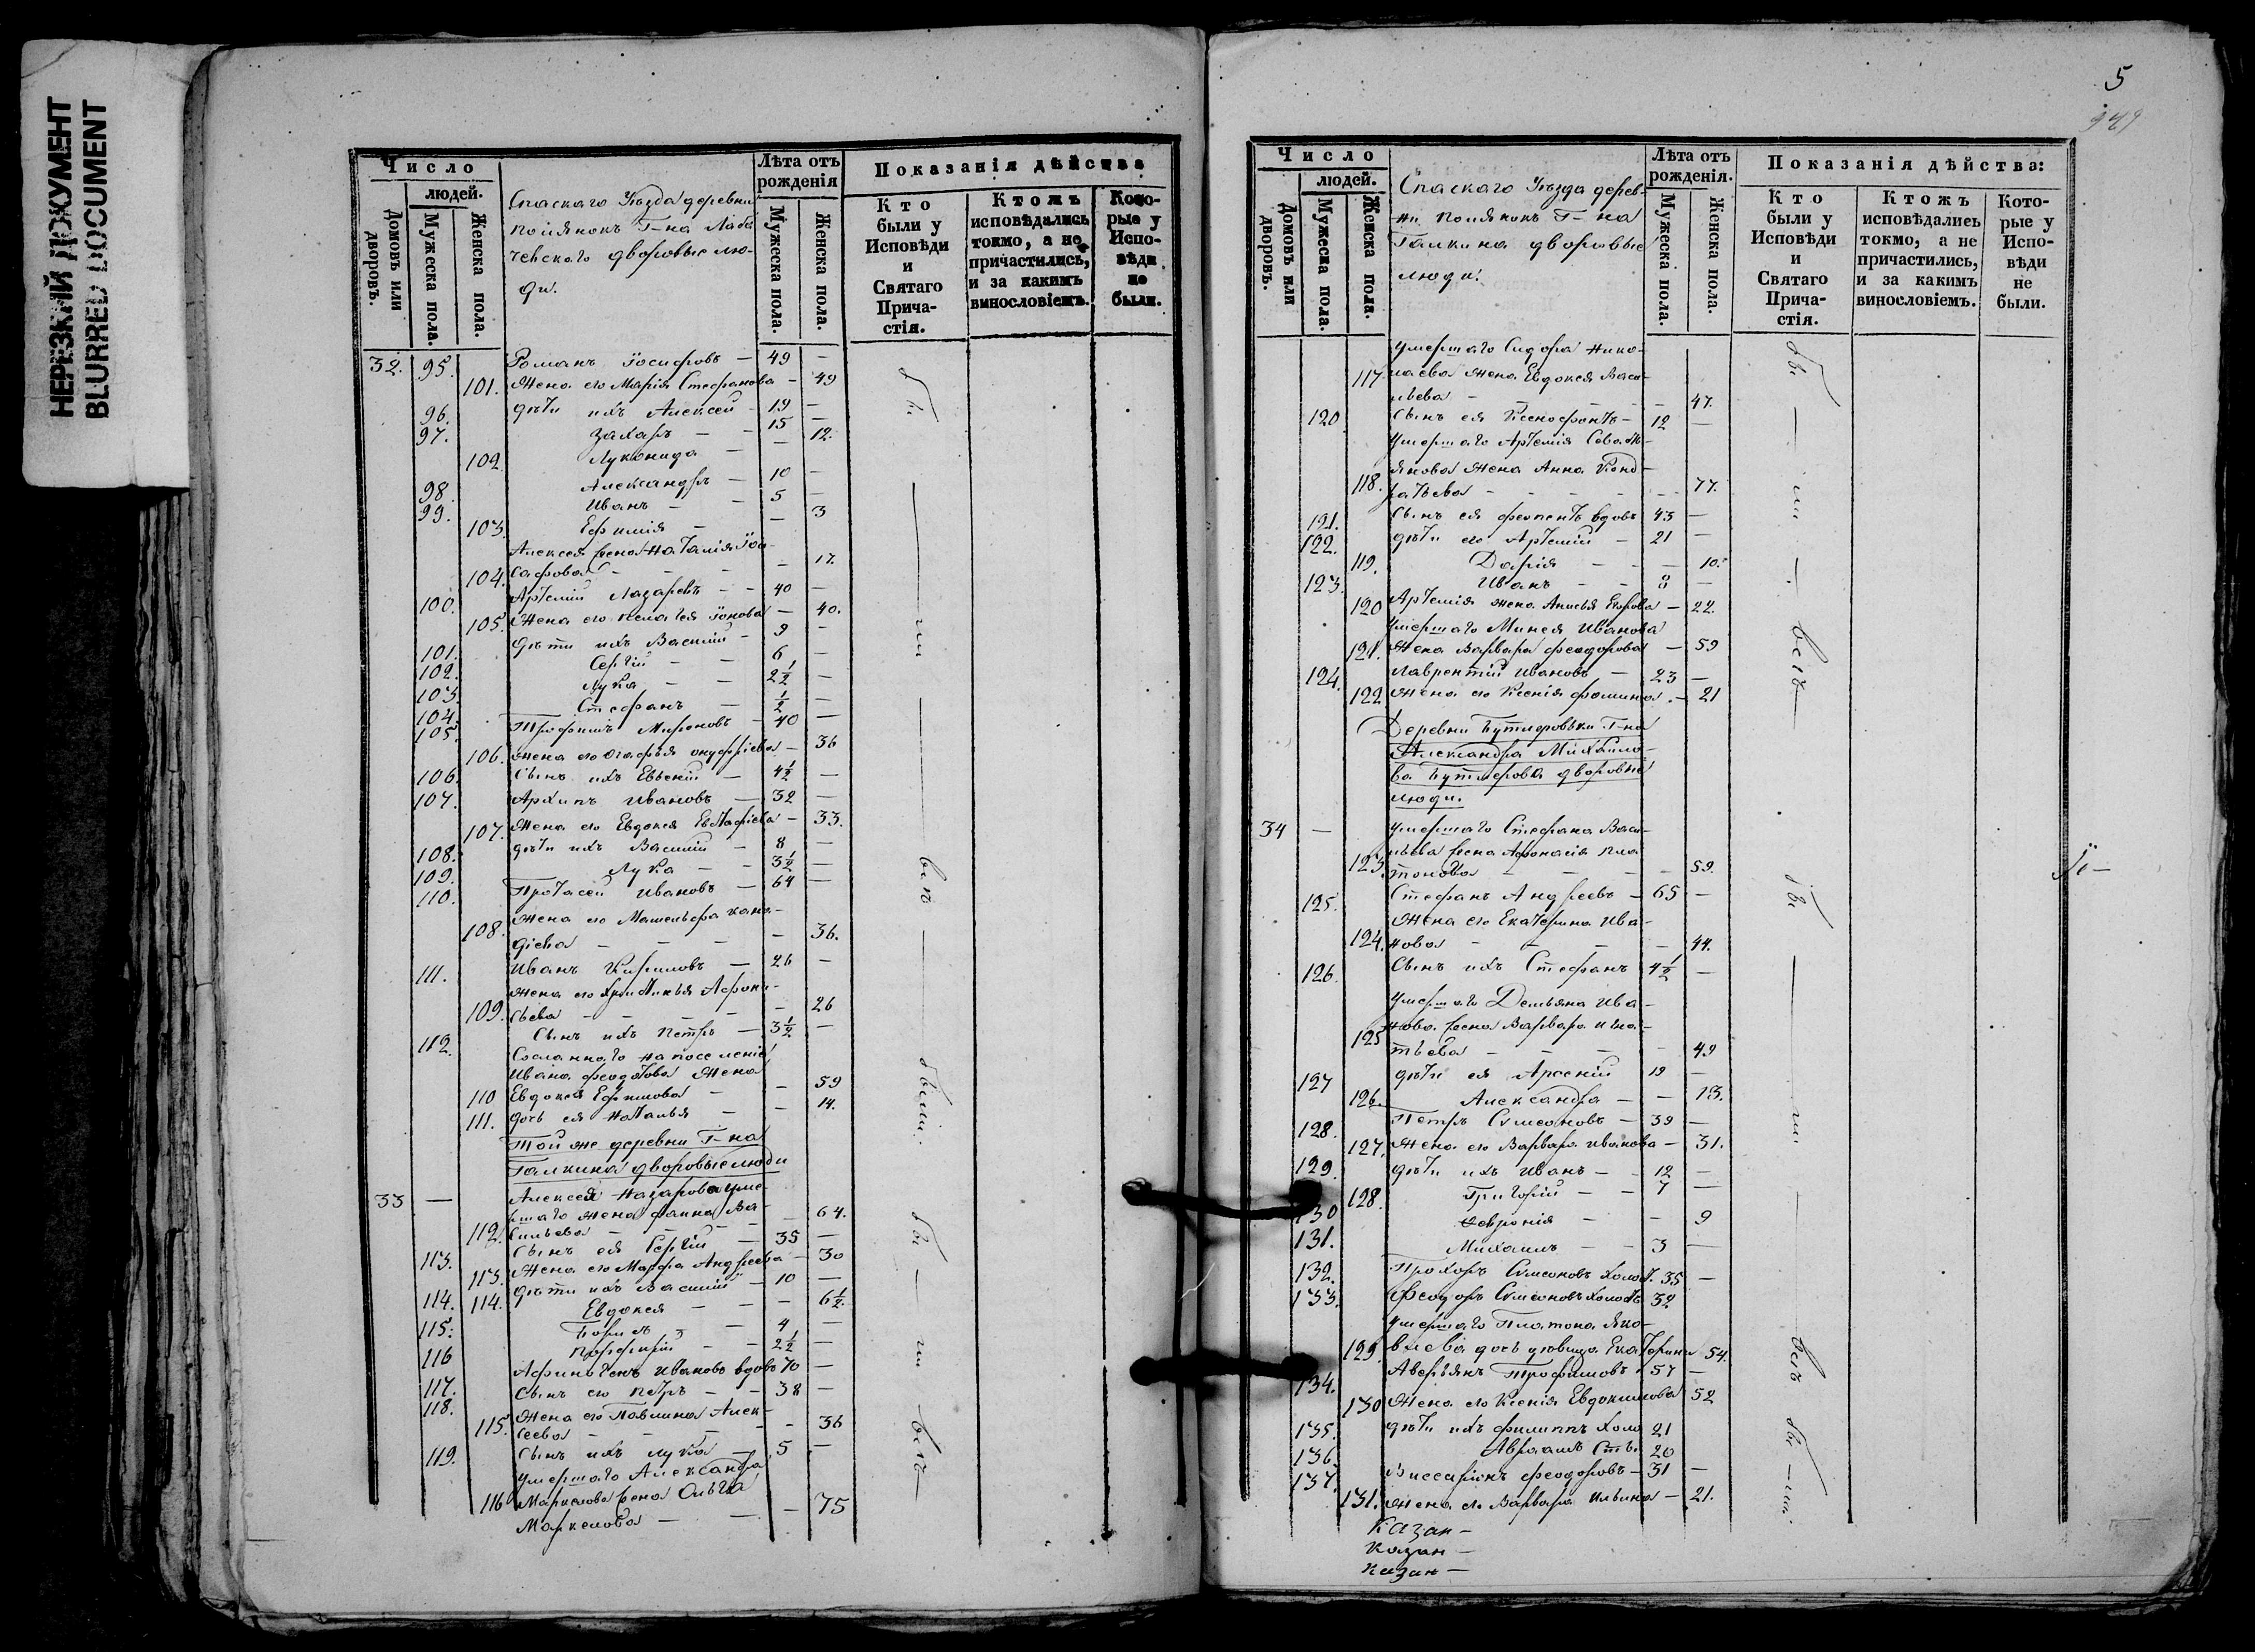 НЕРЕЗКИЙ ДОКУМЕНТ
BLURRED DOCUMENT
Число
людей.
Домовъ или дворовъ.
Мужеска пола.
Женска пола.
Спаскаго Уѣзда деревни
Полянокъ Г-на
дворовые лю-
ди.
Лѣта отъ
рожденія
Мужеска пола.
Женска пола.
Показанія дѣйства
Кто
были у
Исповѣди
и
Святаго
Прича-
стія.
Ктожъ
исповѣдались
токмо, а не
причастились,
и за какимъ
винословіемъ.
Кото-
рые у
Испо-
вѣди
не
были.
32. 95. Романъ Іосифовъ — 49 —
101. Жена его Марія Стефанова — 49
96. дѣти ихъ Алексей — 19 —
97. Захаръ — — 15 —
102. Луконида — — 12.
98. Александръ — 10 —
99. Иванъ — — 5 —
103. Ефимія — — 3
Алексея жена Наталія Іо-
104. сафова — — — — 17.
100. Артемій Лазаревъ — — 40 —
105. Жена его Пелагея Іонова — 40.
101. дѣти ихъ Василий — 9 —
102. Сергій — — 6 —
103. Лука — — 2½ —
104. Стефанъ — ½ —
105. Трофимъ Мироновъ — 40 —
106. жена его Агафья Онуфріева — 36
106. Сынъ ихъ Евгеній — 4½ —
107. Архипъ Ивановъ — 32 —
107. Жена его Евдокея Евстафіева — 33.
108. дѣти ихъ Василий — 8 —
109. Лука — — 3½ —
110. Протасей Ивановъ — 64 —
Жена его
108. діева — — — — 36.
111. Иванъ Кириловъ — 26 —
Жена его Христинья Афона-
109. сьева — — — — 26
112. Сынъ ихъ Петръ — 3½ —
Сосланнаго на поселеніе
Ивана Феодотова жена
110 Евдокея Ефимова — — 59
111. дочь ея Наталья — — 14.
Той же деревни Г-на
Галкина дворовые люди
33 — Алексея Назарова уме-
ршаго жена Фаина Ва-
112. сильева — — — — 64.
113. Сынъ ея Сергій — 35 —
113. Жена его Марфа Андреева — 30
114. дѣти ихъ Василій — 10 —
114. Евдокея — — — 6½
115. Борисъ — — 4 —
116 Порфирій — — 2½ —
117. Ивановъ вдовъ 70 —
118. Сынъ его Петръ — — 38 —
Жена его Павлина Алек-
115. сеева — — — — 36
119. Сынъ ихъ Лука — 5 —
умершаго Александра
116 Маркелова жена Ольга
Маркелова — — — 75
бы — ли — всѣ — были.
бы — ли — всѣ —
5
949
Число
людей.
Домовъ или дворовъ.
Мужеска пола.
Женска пола.
Спаскаго Уѣзда дерев-
ни Полянокъ Г-на
Галкина дворовые
люди.
Лѣта отъ
рожденія.
Мужеска пола.
Женска пола.
Показанія дѣйства:
Кто
были у
Исповѣди
и
Святаго
Прича-
стія.
Ктожъ
исповѣдались
токмо, а не
причастились,
и за какимъ
винословіемъ.
Кото-
рые у
Испо-
вѣди
не
были.
умершаго Сидора Нико-
117 лаева жена Евдокея Васи-
льева — — — — 47.
120 Сынъ ея Ксенофонтъ — 12 —
Умершаго Артемія Севасть-
янова жена Анна Конд-
118. ратьева — — — — 77.
121. Сынъ ея Феопентъ вдовъ 43 —
122. дѣти его Артемій — 21 —
119. Дарія — — — 10.
123. Иванъ — — 8 —
120 Артемія жена Анисья Егорова — 22.
умершаго Минея Иванова
121. жена Варвара Феодорова — 59
124. Лаврентій Ивановъ — 23 —
122 жена его Ксенія Фомина — 21
Деревни Бутлеровки Г-на
Александра Михайло-
ва Бутлерова дворовые
люди.
34 — умершаго Стефана Васи-
льева жена Афонасія Пла-
123. тонова — — — — 59.
125. Стефанъ Андреевъ — 65 —
Жена его Екатерина Ива-
124. нова — — — — 44.
126. Сынъ ихъ Стефанъ 4½ —
умершаго Демьяна Ива-
нова жена Варвара Игна-
125 тьева — — — — 49
127 дѣти ея Арсеній 19 —
126. Александра — — 13.
128. Петръ Симеоновъ — 39 —
127. Жена его Варвара Иванова — 31.
129. дѣти ихъ Иванъ — — 12 —
130 Григорій — — 7 —
128. Февронія — — 9
131. Михаилъ — — 3 —
132. Прохоръ Симеоновъ холос. 35 —
133. Феодоръ Симеоновъ холостъ 32
умершаго Платона Яко-
129. влева дочь девица Екатерина 54.
134. Аверьянъ Трофимовъ 57 —
130 Жена его Ксенія Евдокимова 52
135. дѣти ихъ Филиппъ холо 21
136. Авраамъ 20
137. Виссаріонъ Феодоровъ — 31 —
131. жена его Варвара Ильина — 21.
Казан —
Казан —
Казан —
бы — ли — всѣ —
бы — ли — всѣ бы — ли.